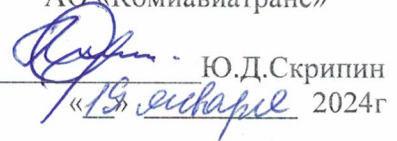 АО «Комиавиатранс»
Ю.Д.Скрипин
«19» января 2024г